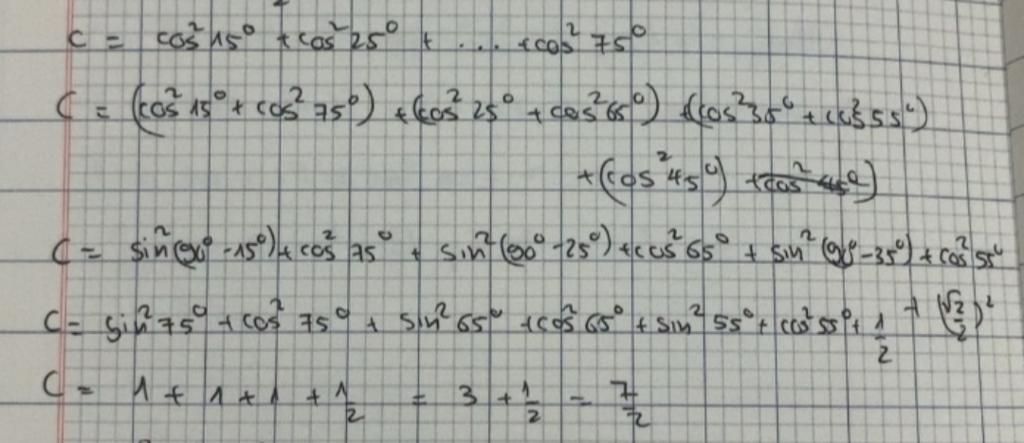 C = cos²15⁰ + cos²25⁰ + ... + cos²75⁰
C = (cos²15⁰ + cos²75⁰) + (cos²25⁰ + cos²65⁰) + (cos²35⁰ + cos²55⁰)
+ (cos²45⁰) + cos²45⁰)
C = sin²(90⁰ - 15⁰) + cos²75⁰ + sin²(90⁰ - 25⁰) + cos²65⁰ + sin²(90⁰ - 35⁰) + cos²55⁰
+ (√2/2)²
C = sin²75⁰ + cos²75⁰ + sin²65⁰ + cos²65⁰ + sin²55⁰ + cos²55⁰ + 1/2
C = 1 + 1 + 1 + 1/2 = 3 + 1/2 = 7/2